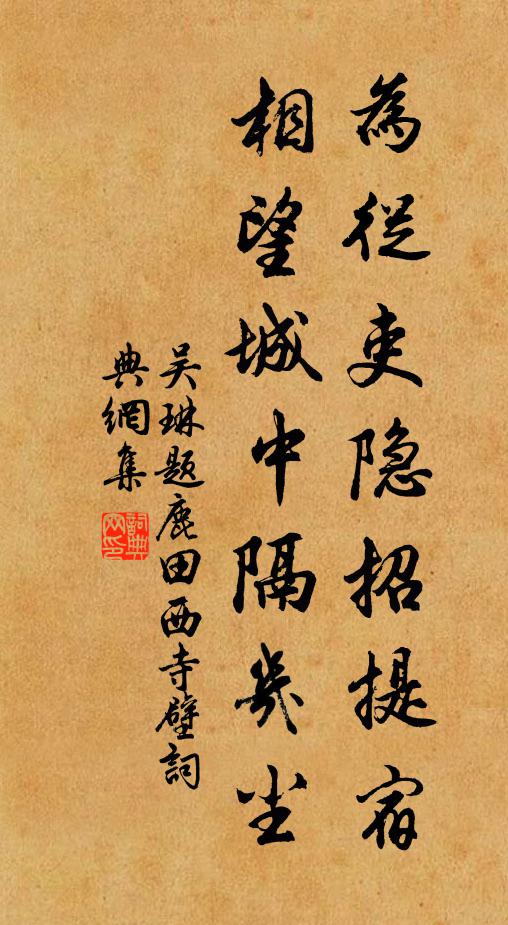 為從吏隐招提宿
相望城中隔幾尘
吴琳题鹿田西寺壁詞
典網集
詞典
网印